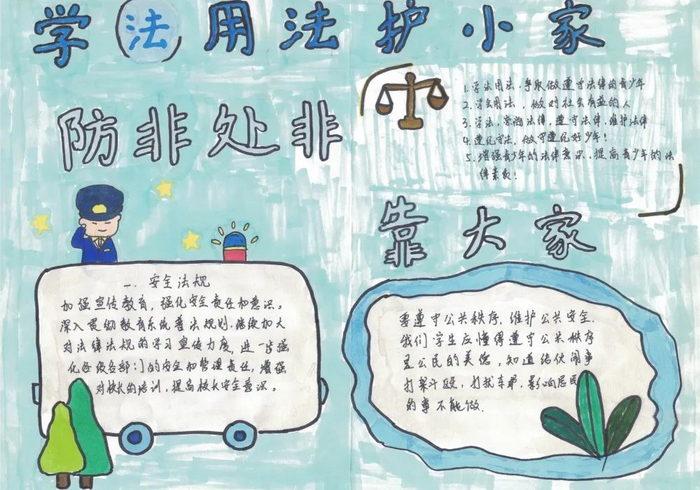 学法用法护小家
防非处非
靠大家
1.学法用法，争取做遵守法律的青少年
2.学法用法，做对社会有益的人
3.学法，掌握法律，遵守法律，维护法律
4.遵纪守法，做守遵纪好少年！
5.增强青少年的法律意识，提高青少年的法
律素质！
一.安全法规
加强宣传教育，强化安全责任和意识。
深入贯彻教育系统普法规划，继续加大
对法律法规的学习宣传力度，进一步强
化各级各部门的安全和管理责任，增强
对校长的培训，提高校长安全意识。
要遵守公共秩序，维护公共安全.
我们学生应懂得遵守公共秩序
是公民的美德，知道结伙闹事
打架斗殴，扒车，影响居民
的事不能做.